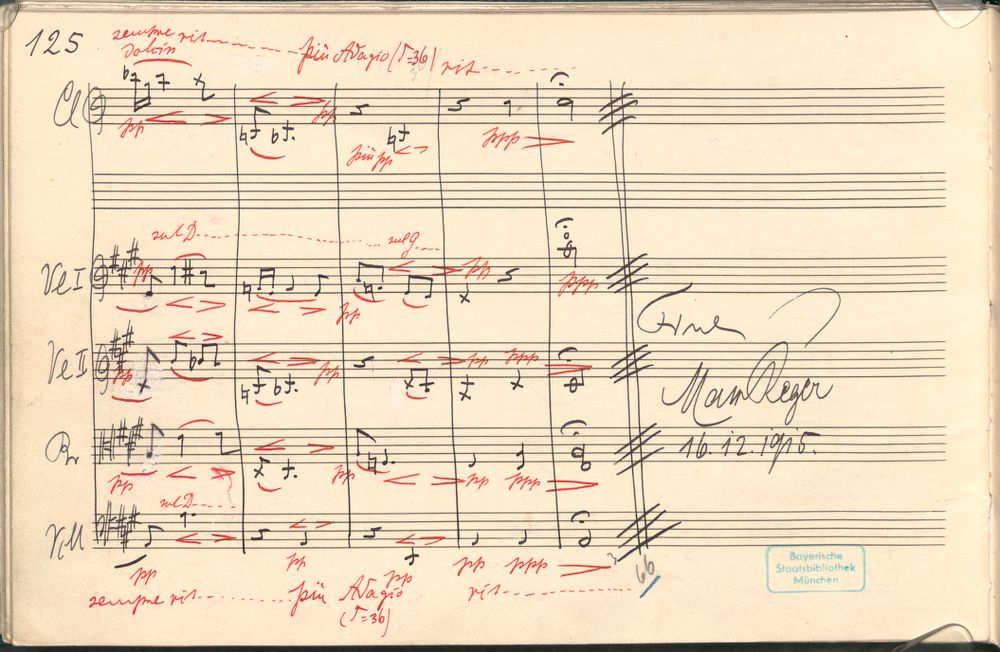 125
sempre rit
dolciss.
più Adagio (♪=36) rit
Cl
pp
pp
più pp
ppp
sul D
sul G
Vl I
pp
pp
pp
ppp
Vl II
pp
pp
pp
ppp
Br
pp
pp
pp
ppp
sul D
Vcll
pp
pp
pp
pp
ppp
sempre rit
più Adagio
rit
(♪=36)
Fine
Max Reger
16. 12. 1915.
3
66
Bayerische
Staatsbibliothek
München